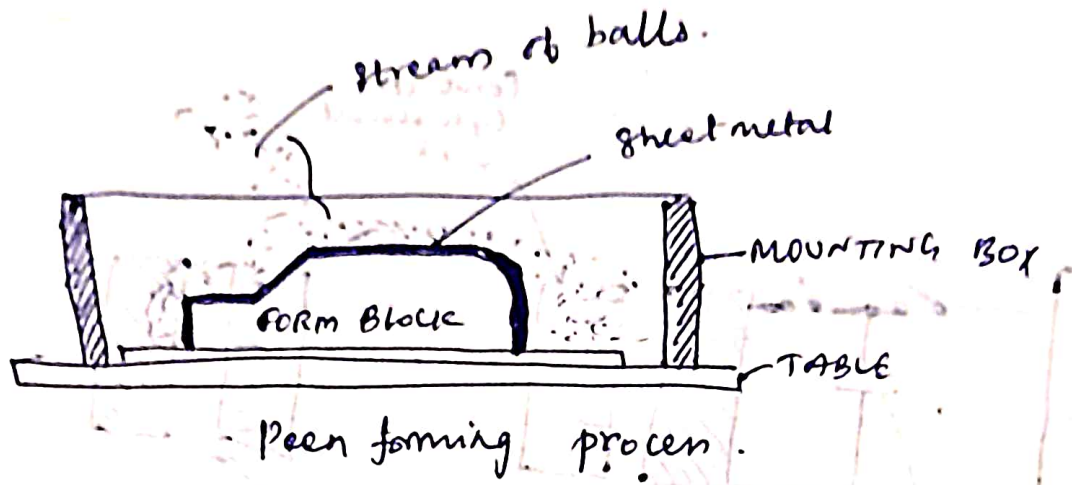 stream of balls.
sheet metal
MOUNTING BOX
FORM BLOCK
TABLE
Peen forming process.